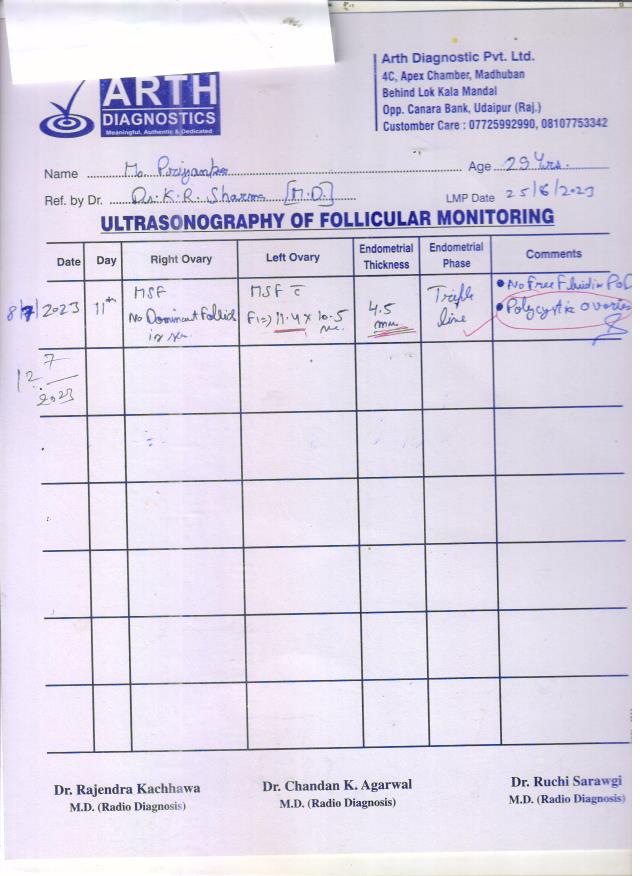 ARTH
DIAGNOSTICS
Meaningful, Authentic & Dedicated
Arth Diagnostic Pvt. Ltd.
4C, Apex Chamber, Madhuban
Behind Lok Kala Mandal
Opp. Canara Bank, Udaipur (Raj.)
Customber Care : 07725992990, 08107753342
Name Ms. Priyanka Age 29 Yrs.
Ref. by Dr. Dr. K. R. Sharma [M.D.] LMP Date 25/6/2023
ULTRASONOGRAPHY OF FOLLICULAR MONITORING
Date Day Right Ovary Left Ovary Endometrial Thickness Endometrial Phase Comments
8/7/2023 11th MSF MSF c̄ 4.5 Triple • No Free Fluid in PoD
No Dominant Follicle F1=) 11.4 x 10.5 mm line • Polycystic ovaries
12/7/2023
Dr. Rajendra Kachhawa Dr. Chandan K. Agarwal Dr. Ruchi Sarawgi
M.D. (Radio Diagnosis) M.D. (Radio Diagnosis) M.D. (Radio Diagnosis)